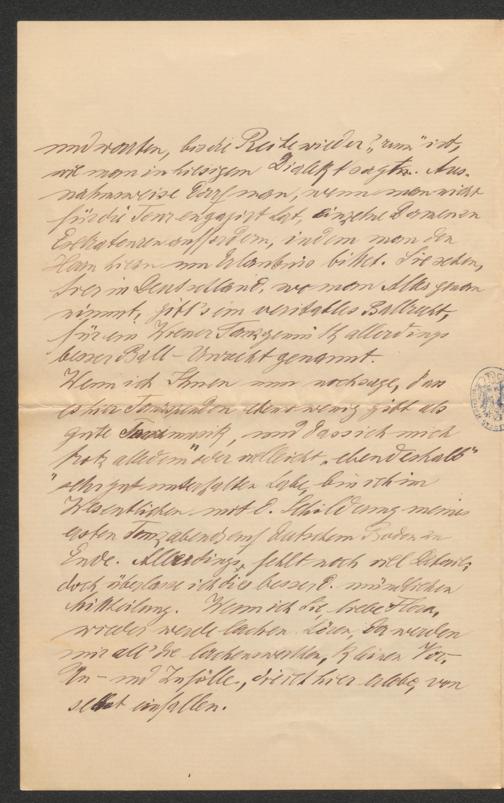 und warten, bis die Reihe wieder „rum“ ist,
wie man in hiesigem Dialekt sagt. Aus-
nahmsweise darf man, wenn man nicht
für die Tour engagirt hat, einzelne Damen zu
Extratouren auffordern, indem man den
Herrn hiezu um Erlaubnis bittet. Sie sehen,
hier in Deutschland, wo man Alles genau
nimmt, gibt's ein veritables Ballrecht,
für ein Wiener Tanzgemüth allerdings
besser Ball-Unrecht genannt.
Wenn ich Ihnen nun noch sage, dass
es hier Tanz eben so wenig gibt als
gute Tanzmusik, und dass ich mich
trotz alledem oder vielleicht „eben deshalb“
sehr gut unterhalten habe, bin ich im
Wesentlichen mit d. Schilderung meines
ersten Tanzabends auf deutschem Boden zu
Ende. Allerdings fehlt noch viel Detail,
doch überlasse ich dies besser d. mündlichen
Mittheilung. Wenn ich Sie, liebe Flora,
wieder werde lachen hören, da werden
mir all' die lachenswerthen, kleinen Vor-,
Un- und Zufälle, die ich hier erlebe, von
selbst einfallen.